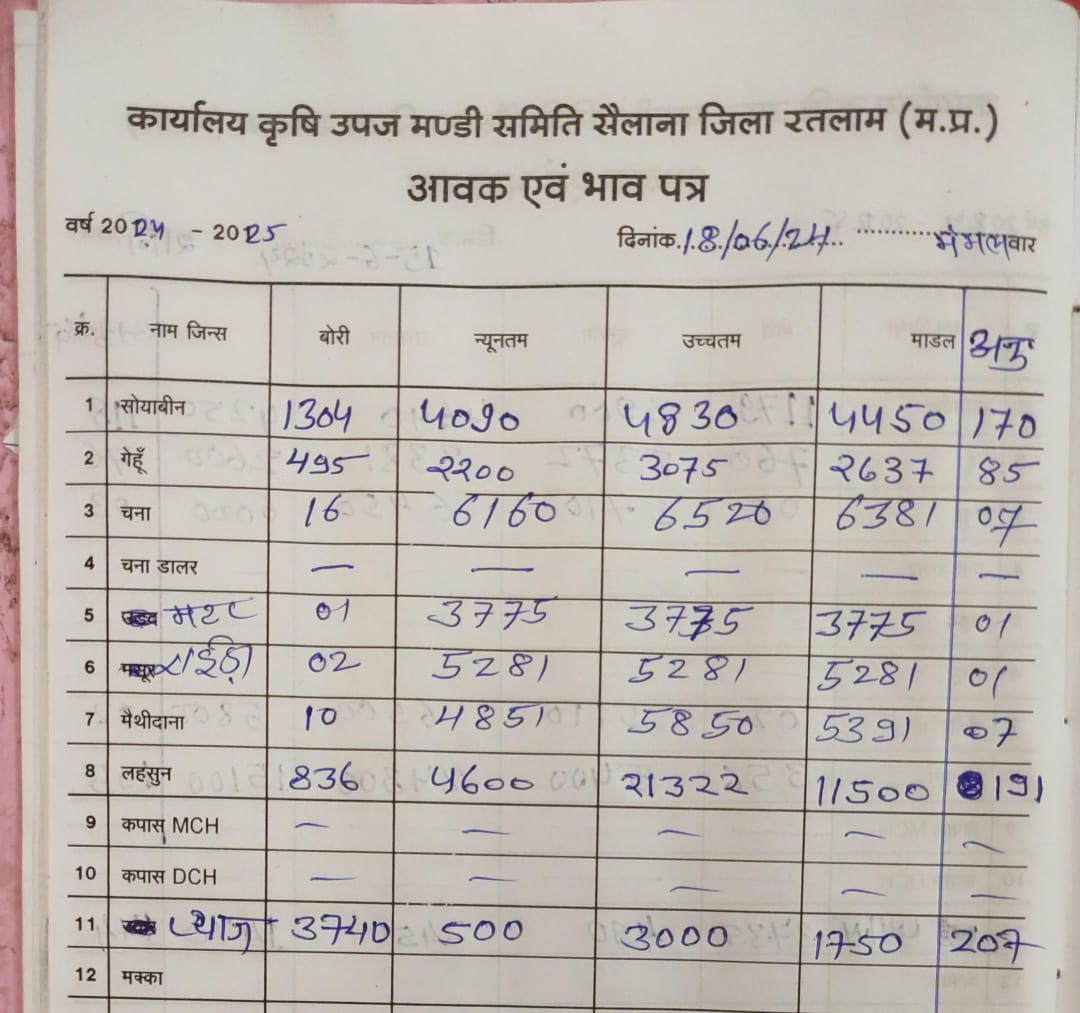 कार्यालय कृषि उपज मण्डी समिति सैलाना जिला रतलाम (म.प्र.)
आवक एवं भाव पत्र
वर्ष 2024 - 2025 दिनांक.18./06./24.. ............ मंगलवार
क्र. नाम जिन्स बोरी न्यूनतम उच्चतम माडल अनु
1 सोयाबीन 1304 4090 4830 4450 170
2 गेहूँ 495 2200 3075 2637 85
3 चना 16 6160 6520 6381 07
4 चना डालर — — — — —
5 मटर 01 3775 3775 3775 01
6 02 5281 5281 5281 01
7 मैथीदाना 10 4851 5850 5391 07
8 लहंसुन 836 4600 21322 11500 191
9 कपास MCH — — — — —
10 कपास DCH — — — — —
11 प्याज 3740 500 3000 1750 207
12 मक्का